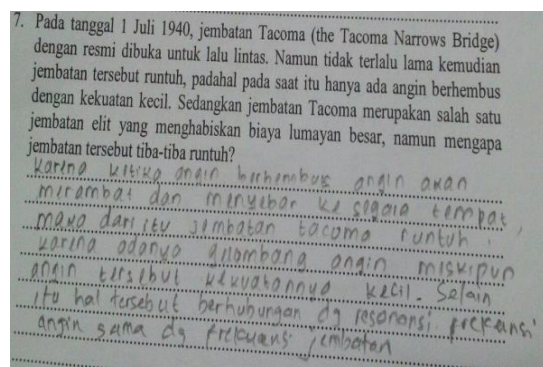 7. Pada tanggal 1 Juli 1940, jembatan Tacoma (the Tacoma Narrows Bridge)
dengan resmi dibuka untuk lalu lintas. Namun tidak terlalu lama kemudian
jembatan tersebut runtuh, padahal pada saat itu hanya ada angin berhembus
dengan kekuatan kecil. Sedangkan jembatan Tacoma merupakan salah satu
jembatan elit yang menghabiskan biaya lumayan besar, namun mengapa
jembatan tersebut tiba-tiba runtuh?
Karena ketika angin berhembus angin akan
merambat dan menyebar ke segala tempat,
maka dari itu jembatan tacoma runtuh.
karena adanya gelombang angin miskipun
angin tersebut kekuatannya kecil. Selain
itu hal tersebut berhubungan dg resonansi. frekeansi
angin sama dg frekuensi jembatan